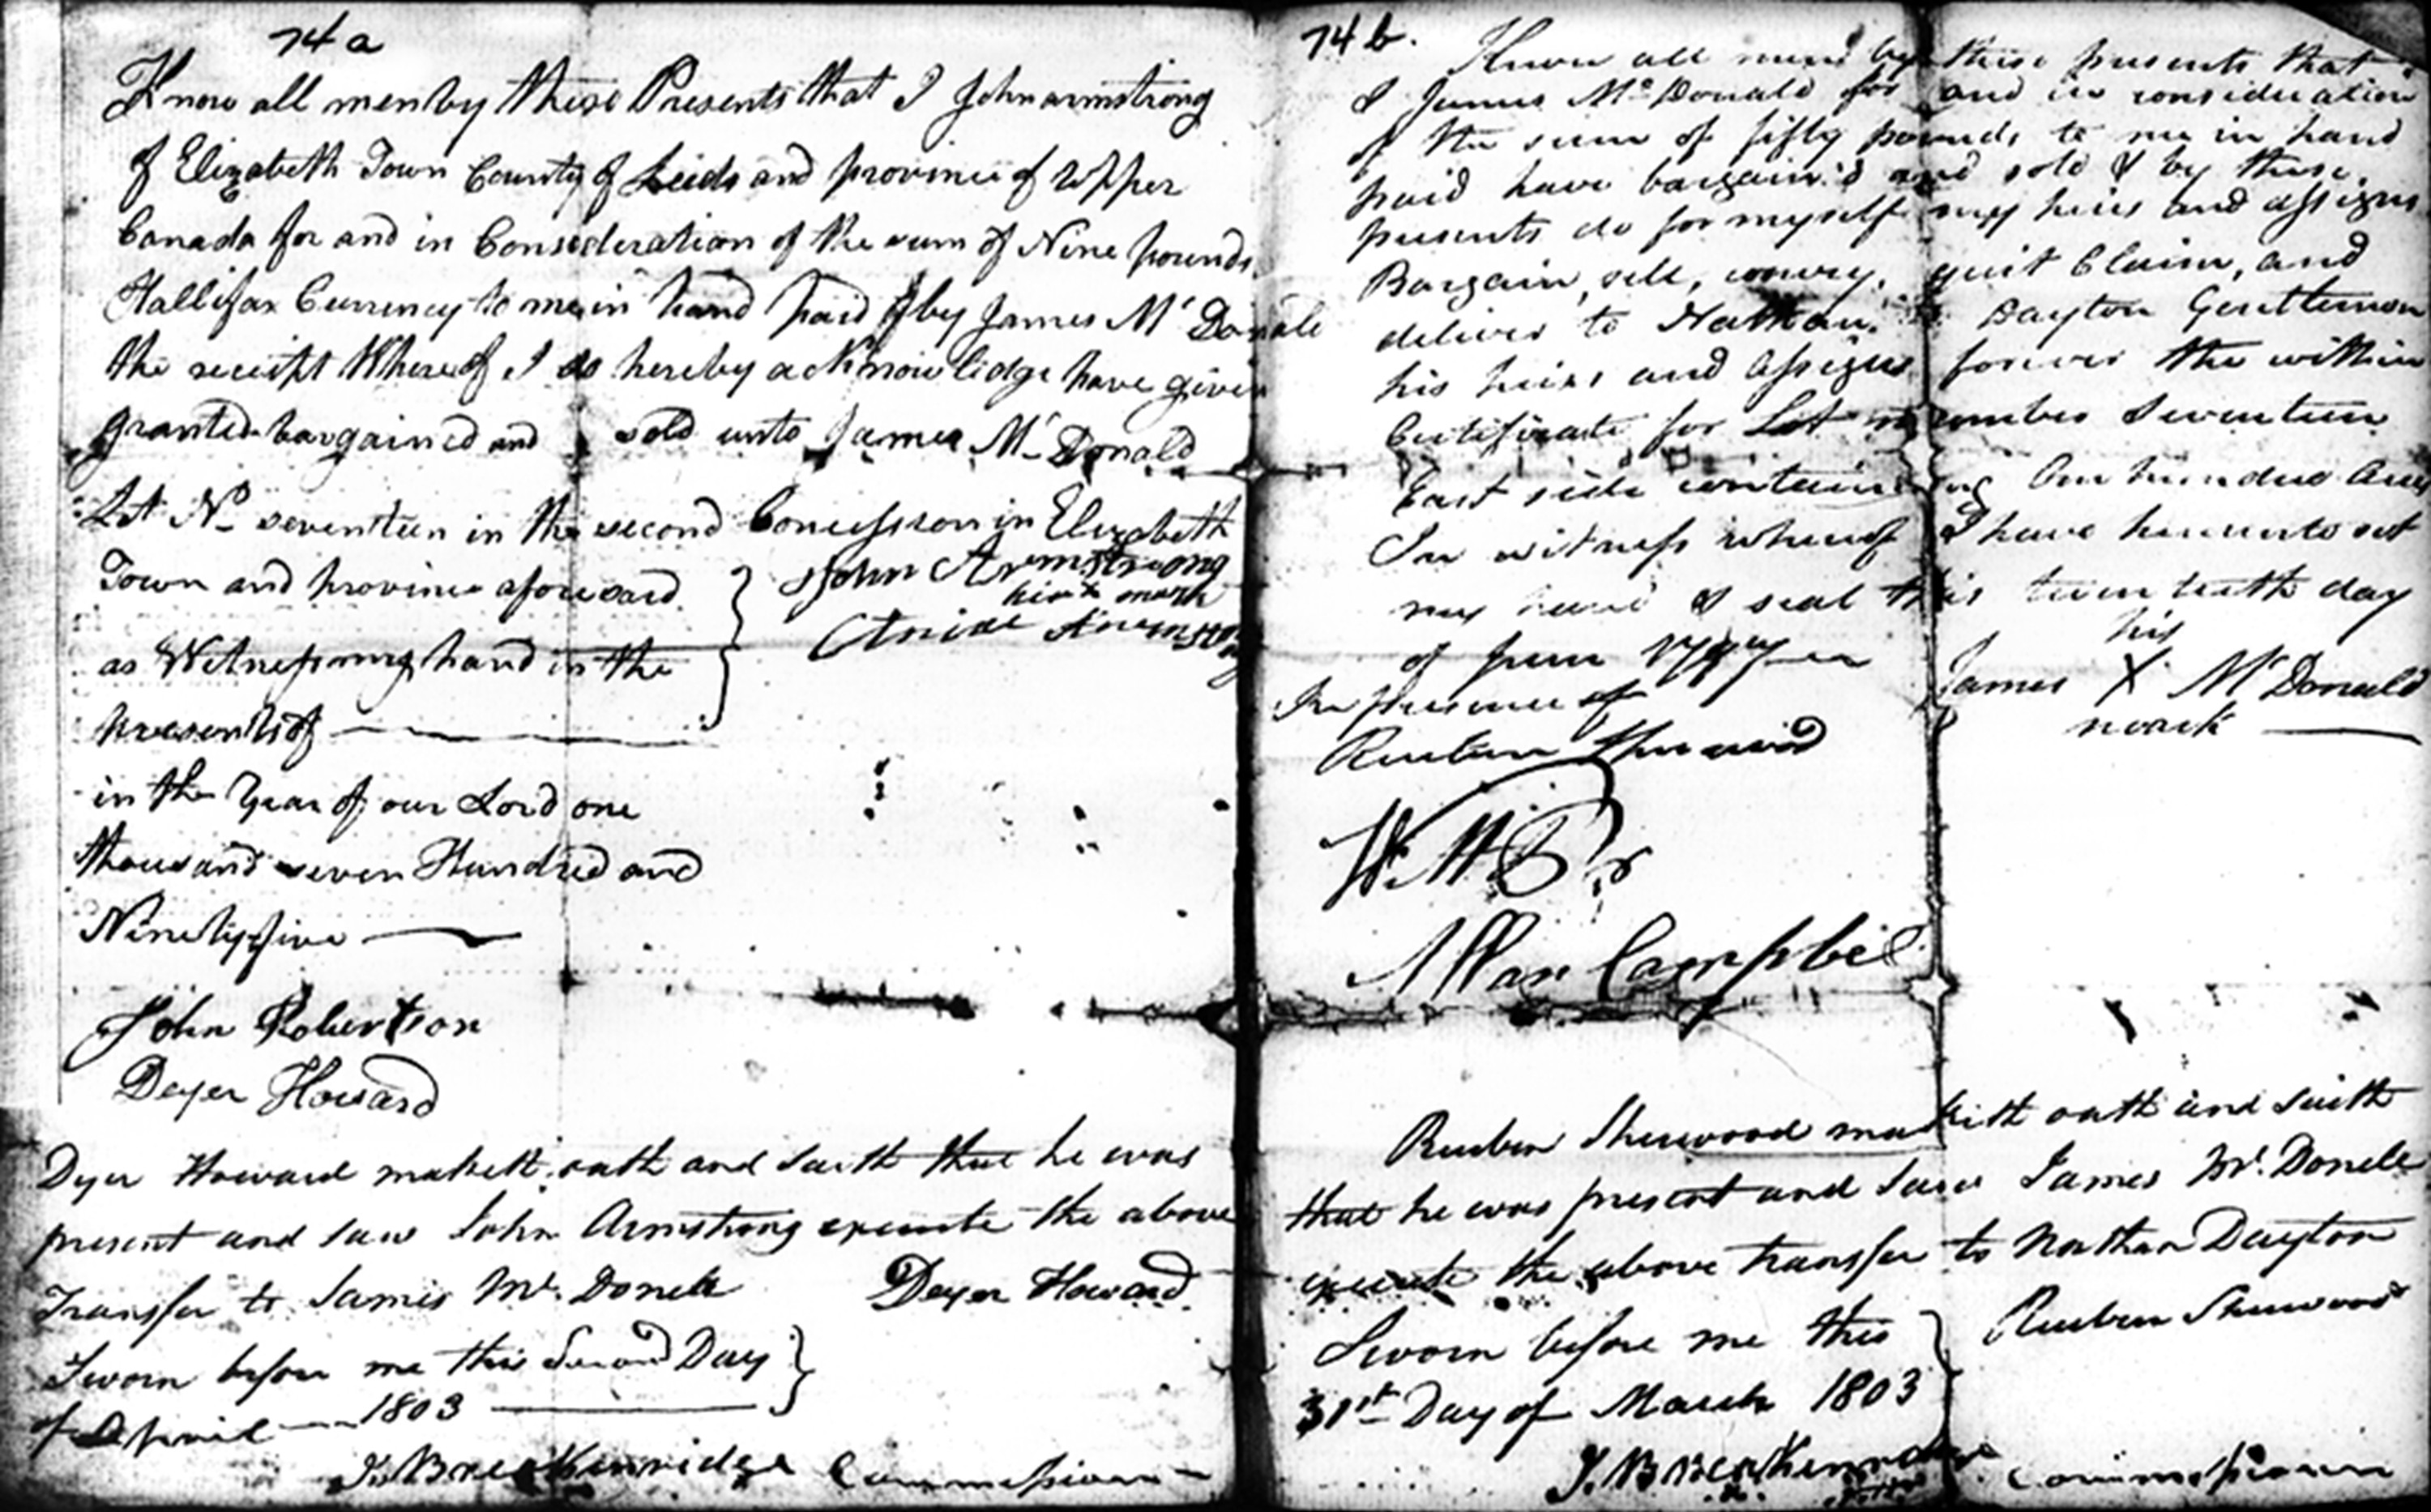 74 a
Know all men by these Presents that I John armstrong
of Elizabeth Town County of Leeds and province of Upper
Canada for and in Consideration of the sum of Nine pounds
Hallifax Currency to me in hand paid by James Mc Donald
the receipt Whereof I do hereby acknowlidge have given
granted bargained and sold unto James Mc Donald
Lot No seventeen in the second Concession in Elizabeth
Town and province aforesaid
as Witness my hand in the
presents of
John Armstrong
his x mark
in the Year of our Lord one
thousand seven Hundred and
Ninety five
John Robertson
Deyer Howard
Dyer Howard maketh oath and saith that he was
present and saw John Armstrong execute the above
Transfer to James Mc. Donell
Deyer Howard
Sworn before me this Second Day
of April 1803
J. Breckenridge Commissioner
74 b.
Know all men by these presents that
I James Mc Donald for and in consideration
of the sum of fifty pounds to me in hand
paid have bargain'd and sold & by these
presents do for myself my heirs and assigns
Bargain, sell, convey, quit Claim, and
deliver to Nathan Dayton Gentleman
his heirs and assigns forever the within
Certificate for Lot number Seventeen
East side containing One hundred Acres
In witness whereof I have hereunto set
my hand & seal this twentieth day
of June
In presence of
his
James X Mc Donald
mark
Reuben Sherwood
Allan Campbel
Reuben Sherwood maketh oath and saith
that he was present and saw James Mc. Donell
execute the above transfer to Nathan Dayton
Reuben Sherwood
Sworn before me this
31st Day of March 1803
J. Breckenridge
Commissioner